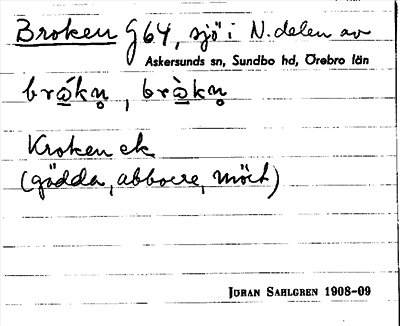 Broken G64, sjö i N. delen av
Askersunds sn, Sundbo hd, Örebro län
Kroken ek
(gädda, abborre, mört)
JÖRAN SAHLGREN 1908-09